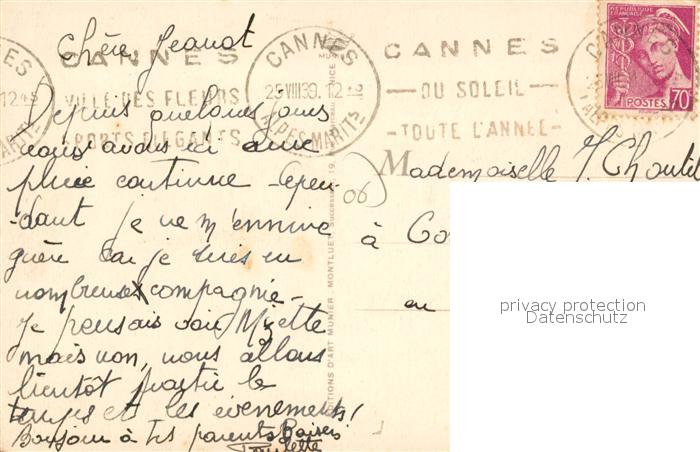 Chère Jeanot
Depuis quelques jours
nous avons ici une
pluie continue - Cepen-
dant je ne m'ennuie
guère car je suis en
nombreuse compagnie -
Je pensais voir Mizette
mais non, nous allons
bientôt partir le
temps et les évenements!
Bonjour à tes parents Baisers
Paulette
CANNES
VILLE DES FLEURS
SPORTS ELEGANTS
CANNES
25 VIII 39. 12
ALPES MARITS
CANNES
- DU SOLEIL -
- TOUTE L'ANNÉE -
REPUBLIQUE FRANCAISE
POSTES 70
Mademoiselle
à
en
06
EDITIONS D'ART MUNIER, MONTLUET Successeur, 19
privacy protection
Datenschutz